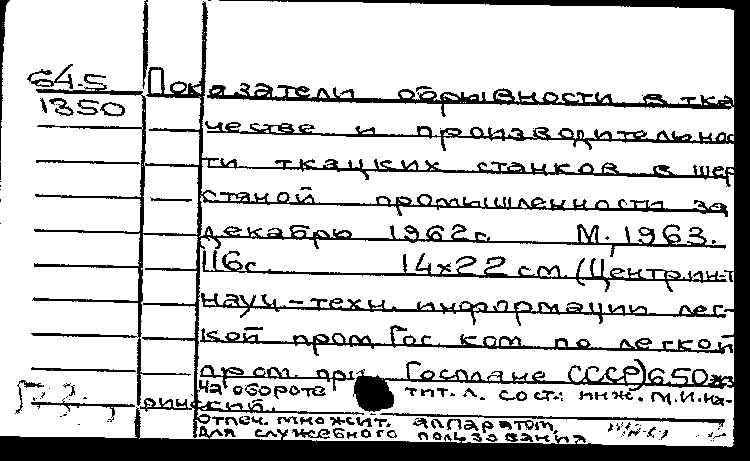 64.5
1350
Показатели обрывности в тка
честве и производительнос
ти ткацких станков в шер
стяной промышленности за
декабрь 1962 г. М., 1963.
116 с. 14x22 см. (Центр. ин-т
науч.-техн. информации лег-
кой пром. Гос. ком. по легкой
пром. при Госплане СССР) 650 экз
На обороте тит. л. сост.: инж. М.И.
ринский.
Отпеч. множит. аппаратом
Для служебного пользования